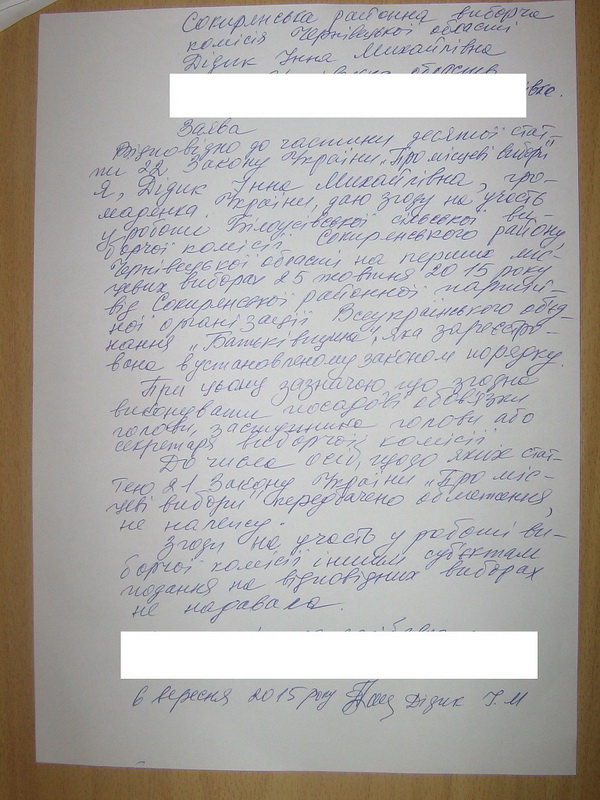 Сокирянська районна виборча
комісія Чернівецької області
Дідик Інна Михайлівна
область
Заява
Відповідно до частини десятої стат-
ті 22 Закону України „Про місцеві вибори"
Я, Дідик Інна Михайлівна, гро-
мадянка України, даю згоду на участь
у роботі Білоусівської сільської ви-
борчої комісії Сокирянського району
Чернівецької області на перших міс-
цевих виборах 25 жовтня 2015 року
від Сокирянської районної партій-
ної організації Всеукраїнського об'єд-
нання „Батьківщина", яка зареєстро-
вана в установленому законом порядку.
При цьому зазначаю що згодна
виконувати посадові обов'язки
голови, заступника голови або
секретаря виборчої комісії.
До числа осіб, щодо яких стат-
тею 21 Закону України „Про міс-
цеві вибори" передбачено обмеження,
не належу.
Згоди на участь у роботі ви-
борчої комісії іншим суб'єктам
подання на відповідних виборах
не надавала.
6 вересня 2015 року Дідик І.М